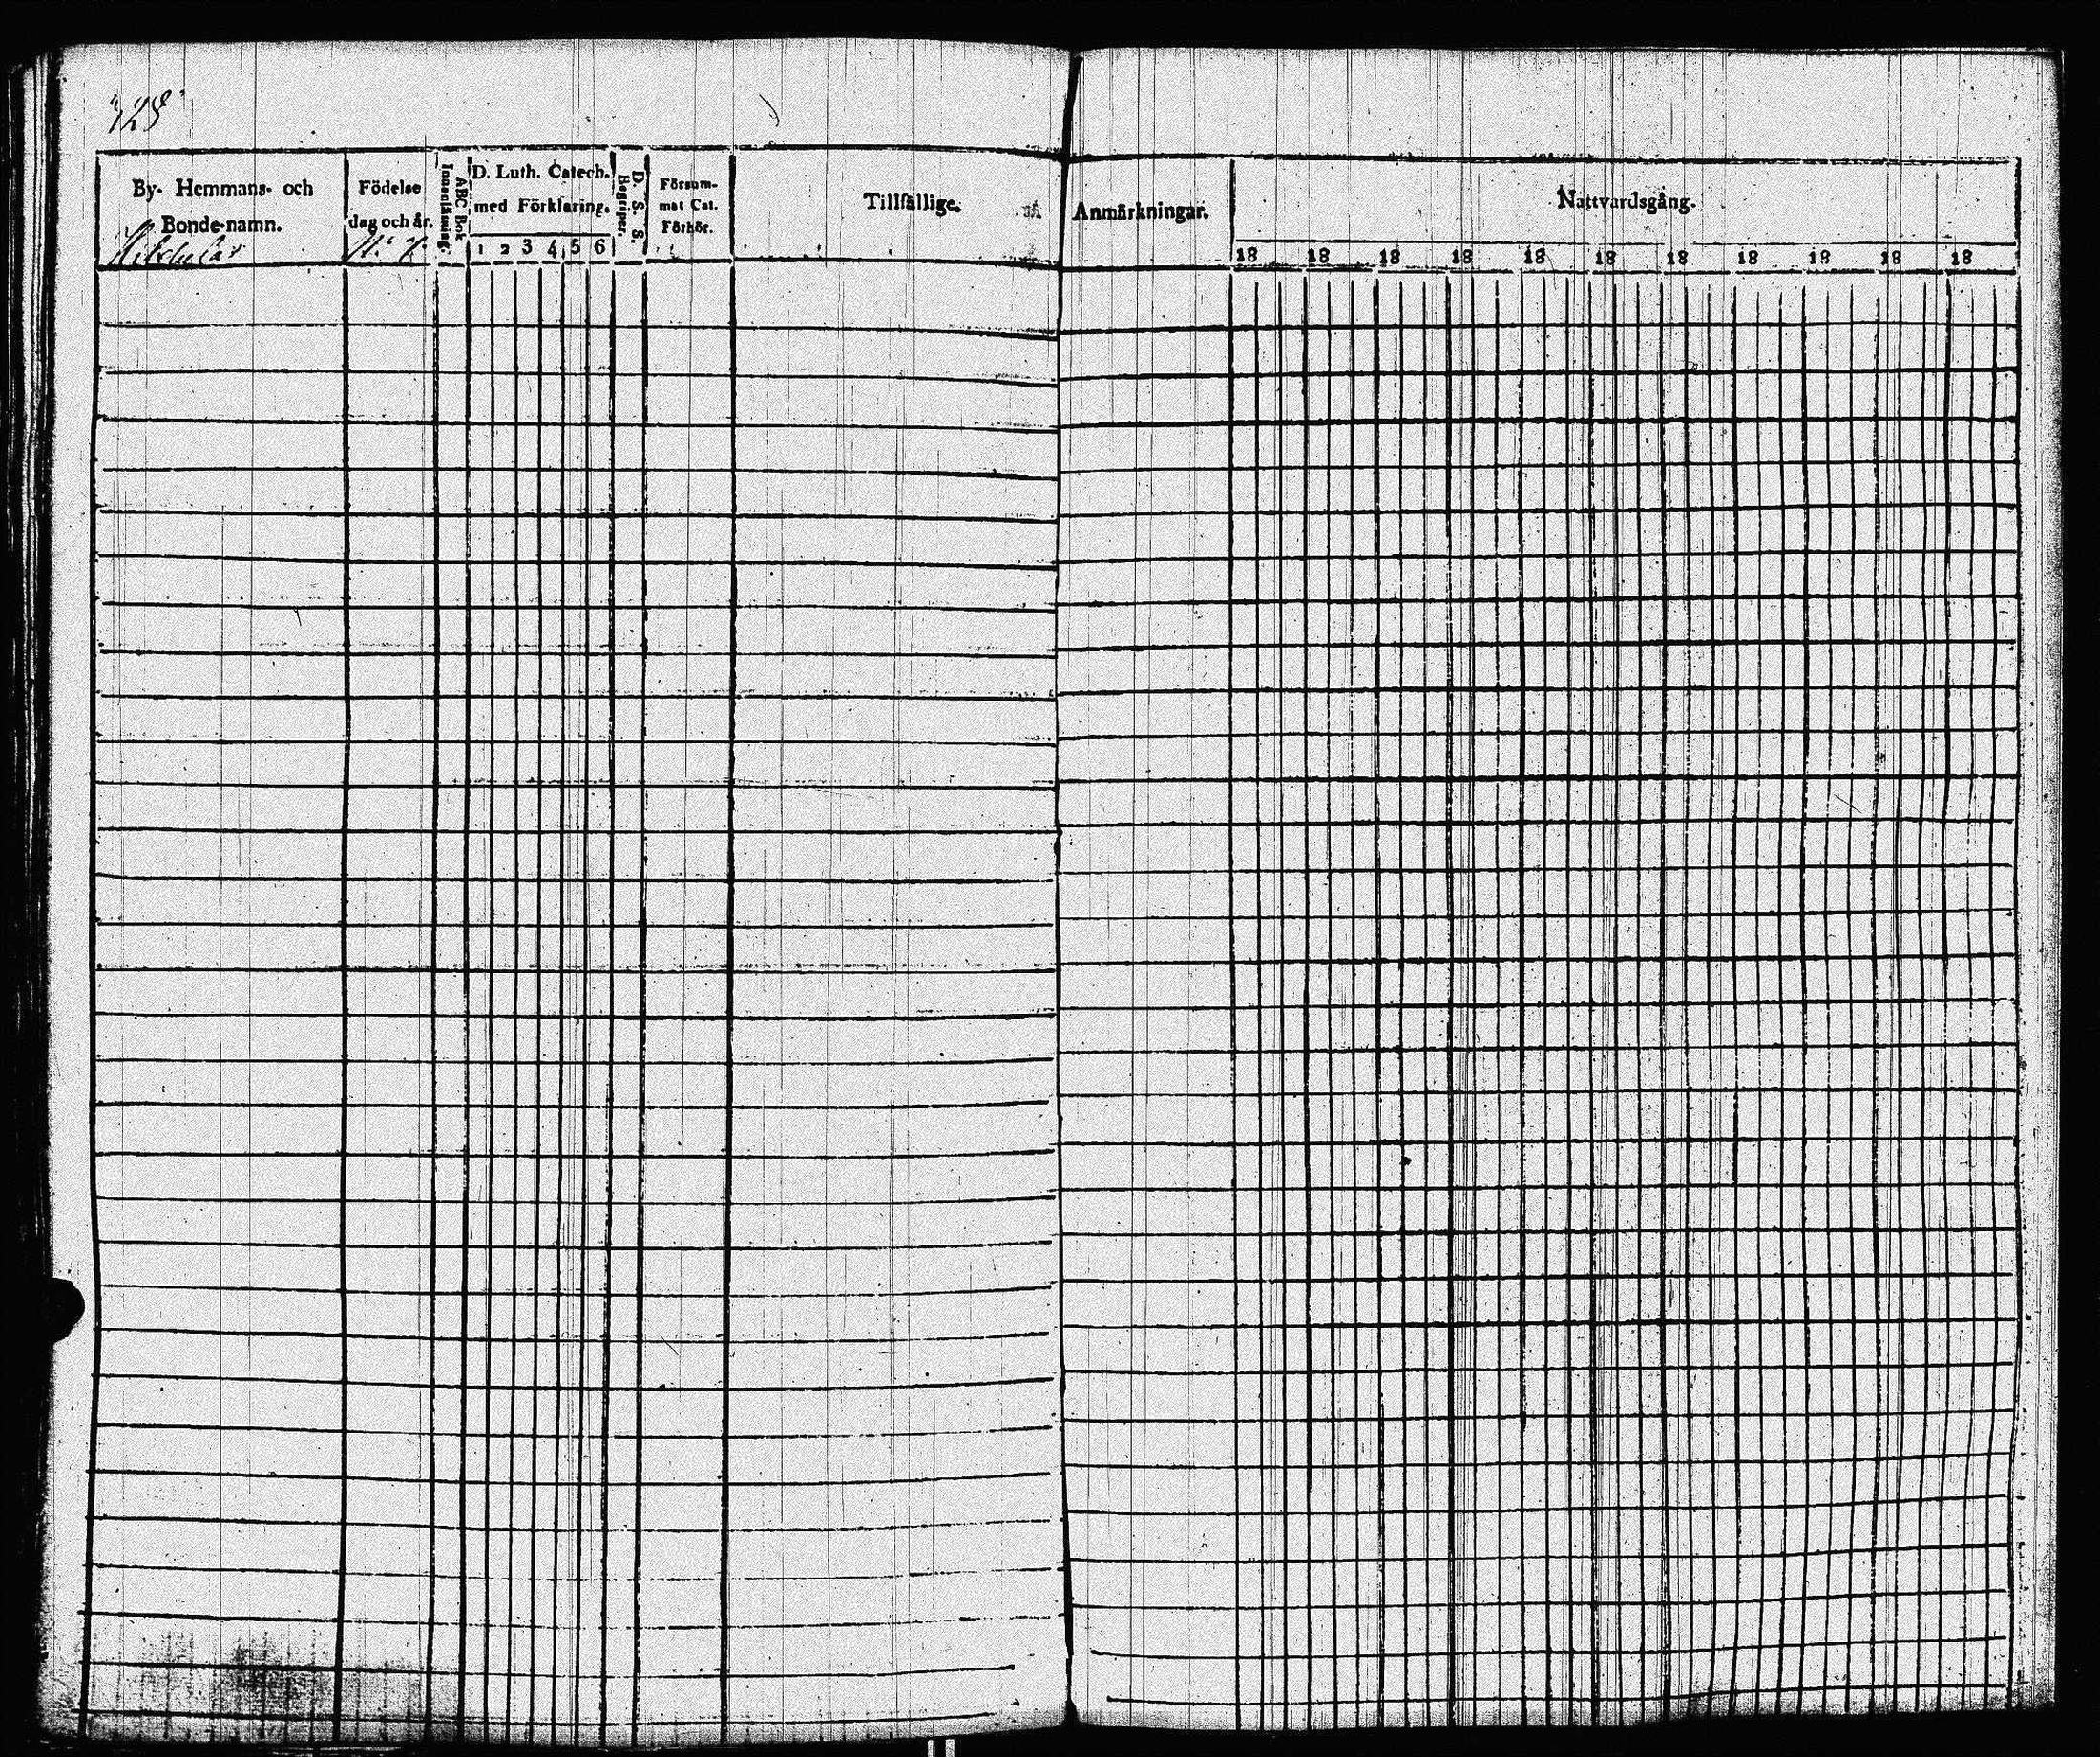 728
By- Hemmans- och Bonde-namn.
Födelse dag och år.
ABC Bok Innanläsning.
D. Luth. Catech. med Förklaring.
1 2 3 4 5 6
D. S. S. Begriper.
Försum- mat Cat. Förhör.
Tillfällige
Anmärkningar.
Nattvardsgång.
18 18 18 18 18 18 18 18 18 18 18